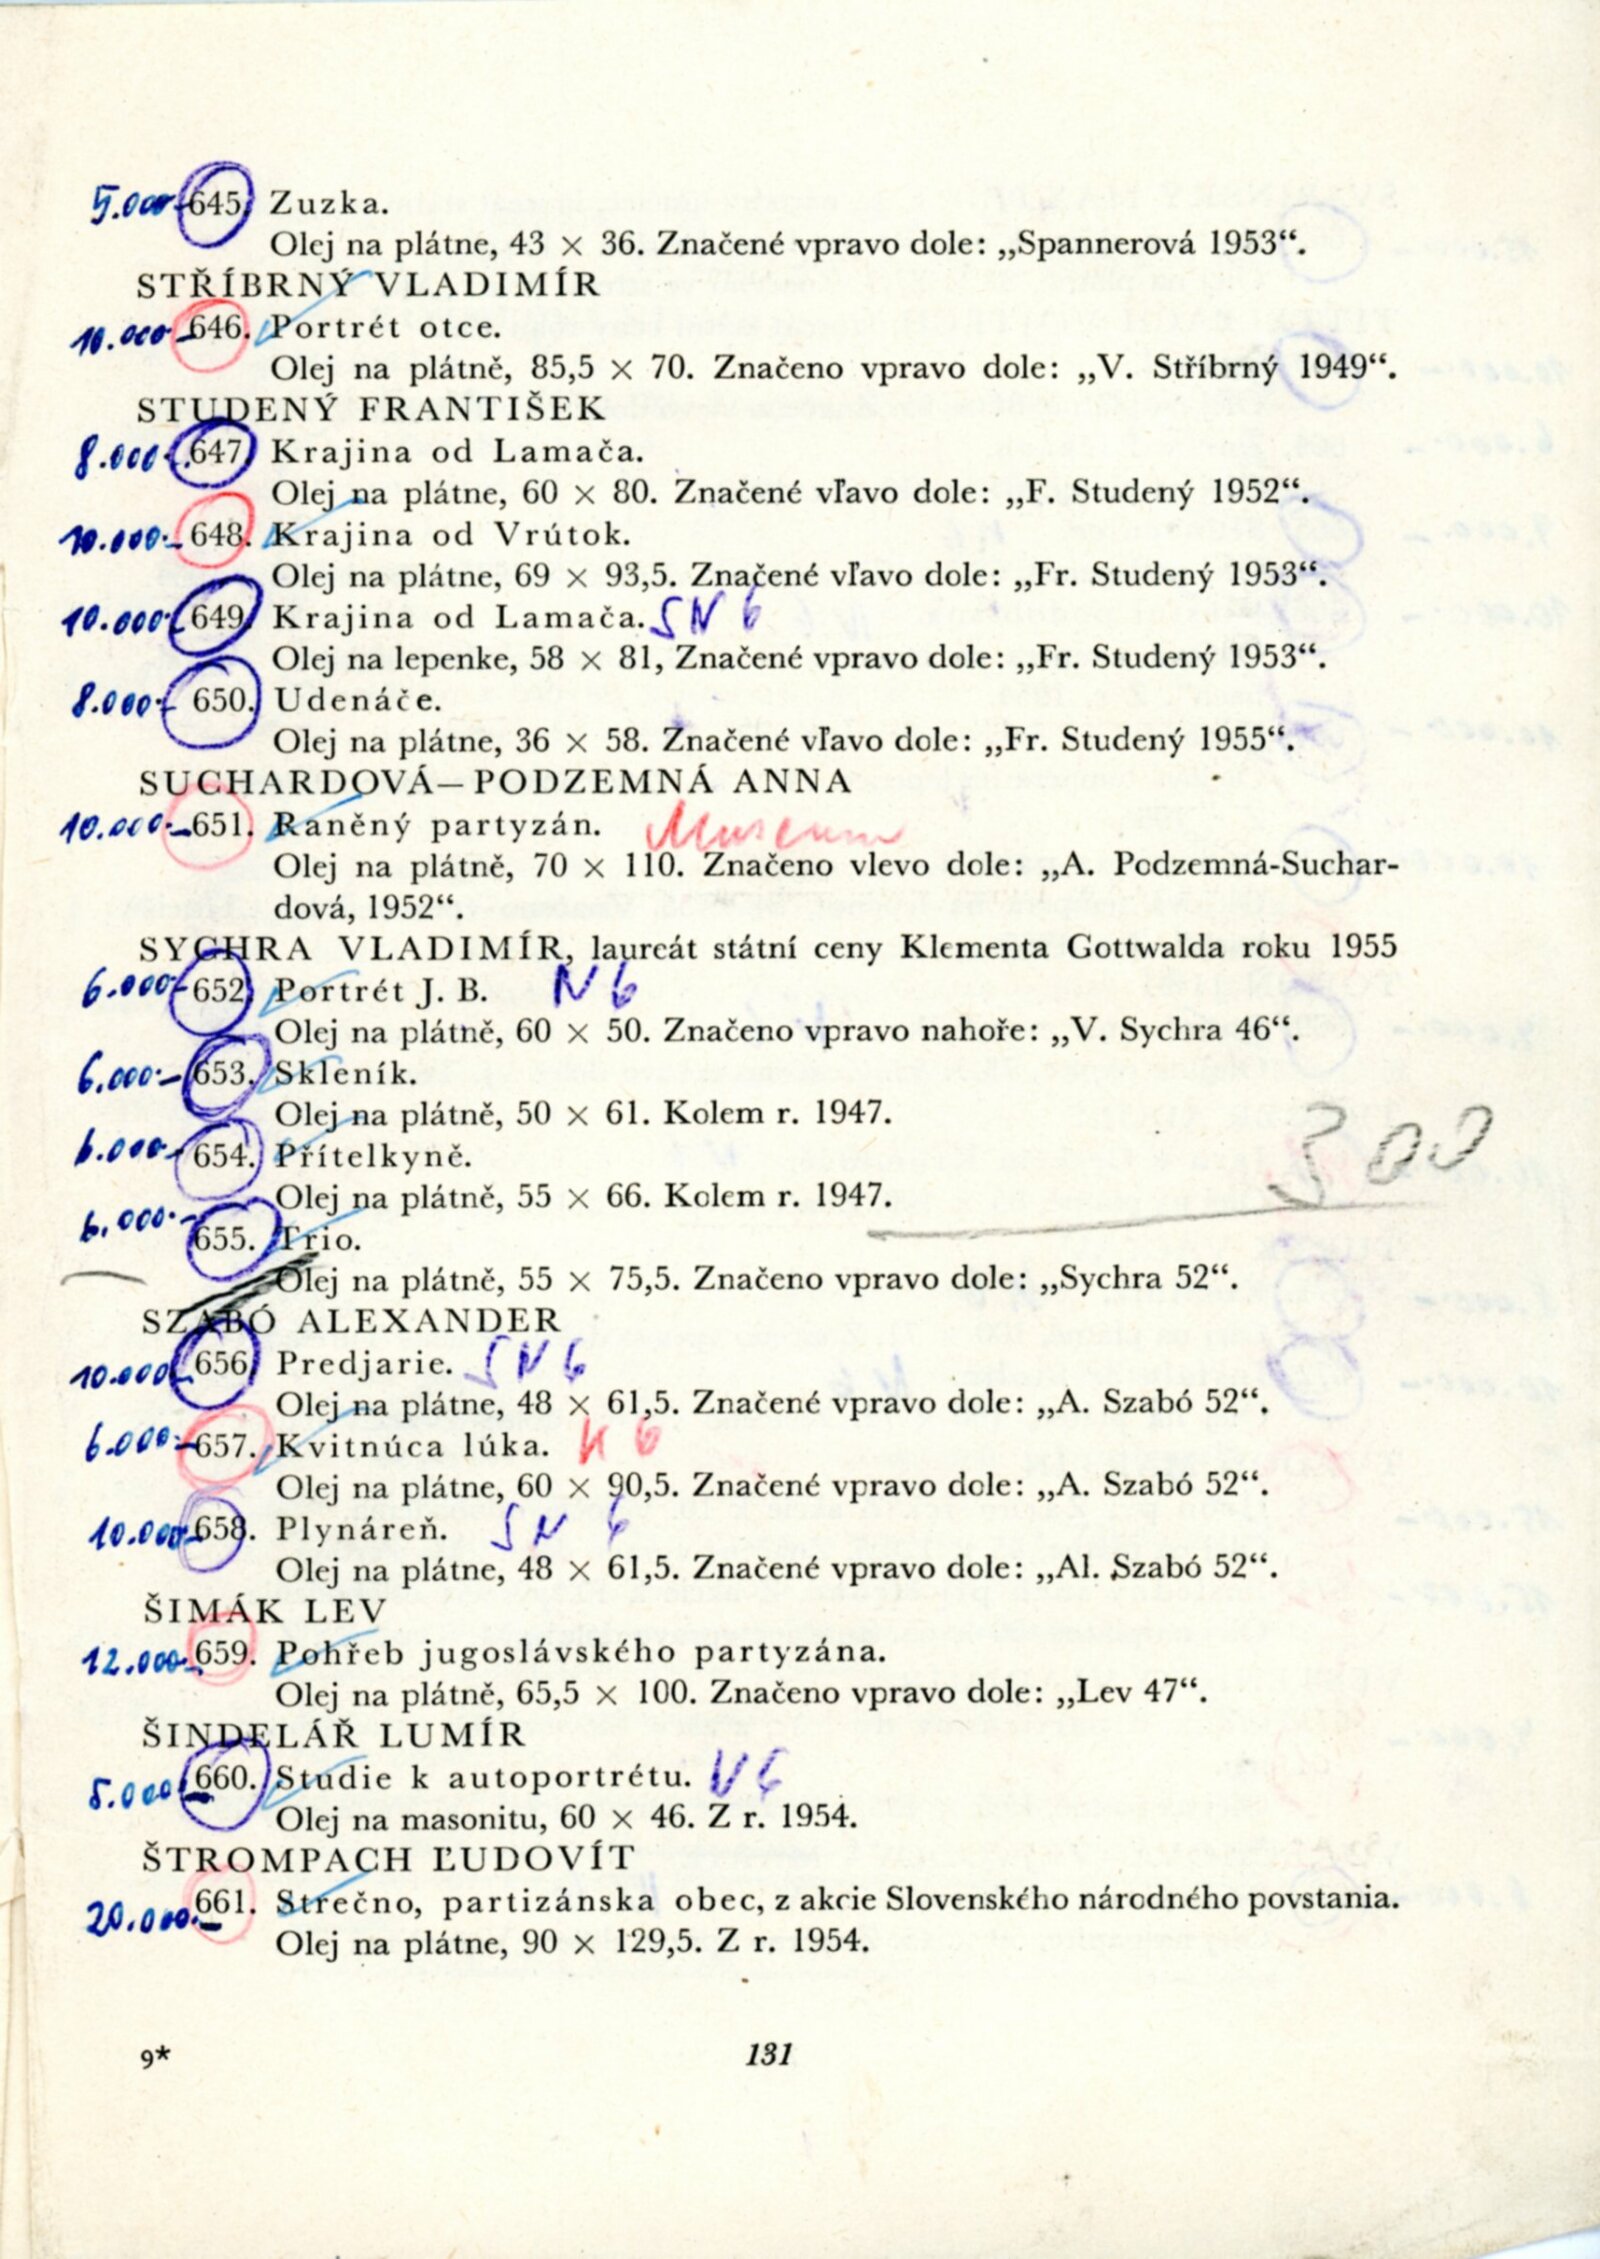 5.000.- 645. Zuzka.
Olej na plátne, 43 × 36. Značené vpravo dole: „Spannerová 1953“.
STŘÍBRNÝ VLADIMÍR
10.000.- 646. Portrét otce.
Olej na plátně, 85,5 × 70. Značeno vpravo dole: „V. Stříbrný 1949“.
STUDENÝ FRANTIŠEK
8.000.- 647. Krajina od Lamača.
Olej na plátne, 60 × 80. Značené vľavo dole: „F. Studený 1952“.
10.000.- 648. Krajina od Vrútok.
Olej na plátne, 69 × 93,5. Značené vľavo dole: „Fr. Studený 1953“.
10.000.- 649. Krajina od Lamača. SN 6
Olej na lepenke, 58 × 81, Značené vpravo dole: „Fr. Studený 1953“.
8.000.- 650. Udenáče.
Olej na plátne, 36 × 58. Značené vľavo dole: „Fr. Studený 1955“.
SUCHARDOVÁ—PODZEMNÁ ANNA
10.000.- 651. Raněný partyzán. Museum
Olej na plátně, 70 × 110. Značeno vlevo dole: „A. Podzemná-Suchar-
dová, 1952“.
SYCHRA VLADIMÍR, laureát státní ceny Klementa Gottwalda roku 1955
6.000.- 652. Portrét J. B. N 6
Olej na plátně, 60 × 50. Značeno vpravo nahoře: „V. Sychra 46“.
6.000.- 653. Skleník.
Olej na plátně, 50 × 61. Kolem r. 1947.
6.000.- 654. Přítelkyně.
Olej na plátně, 55 × 66. Kolem r. 1947.
6.000.- 655. Trio.
Olej na plátně, 55 × 75,5. Značeno vpravo dole: „Sychra 52“.
SZABÓ ALEXANDER
10.000.- 656. Predjarie. SN 6
Olej na plátne, 48 × 61,5. Značené vpravo dole: „A. Szabó 52“.
6.000.- 657. Kvitnúca lúka. K 6
Olej na plátne, 60 × 90,5. Značené vpravo dole: „A. Szabó 52“.
10.000.- 658. Plynáreň. SN 6
Olej na plátne, 48 × 61,5. Značené vpravo dole: „Al. Szabó 52“.
ŠIMÁK LEV
12.000.- 659. Pohřeb jugoslávského partyzána.
Olej na plátně, 65,5 × 100. Značeno vpravo dole: „Lev 47“.
ŠINDELÁŘ LUMÍR
5.000.- 660. Studie k autoportrétu. N 6
Olej na masonitu, 60 × 46. Z r. 1954.
ŠTROMPACH ĽUDOVÍT
20.000.- 661. Strečno, partizánska obec, z akcie Slovenského národného povstania.
Olej na plátne, 90 × 129,5. Z r. 1954.
9*
131